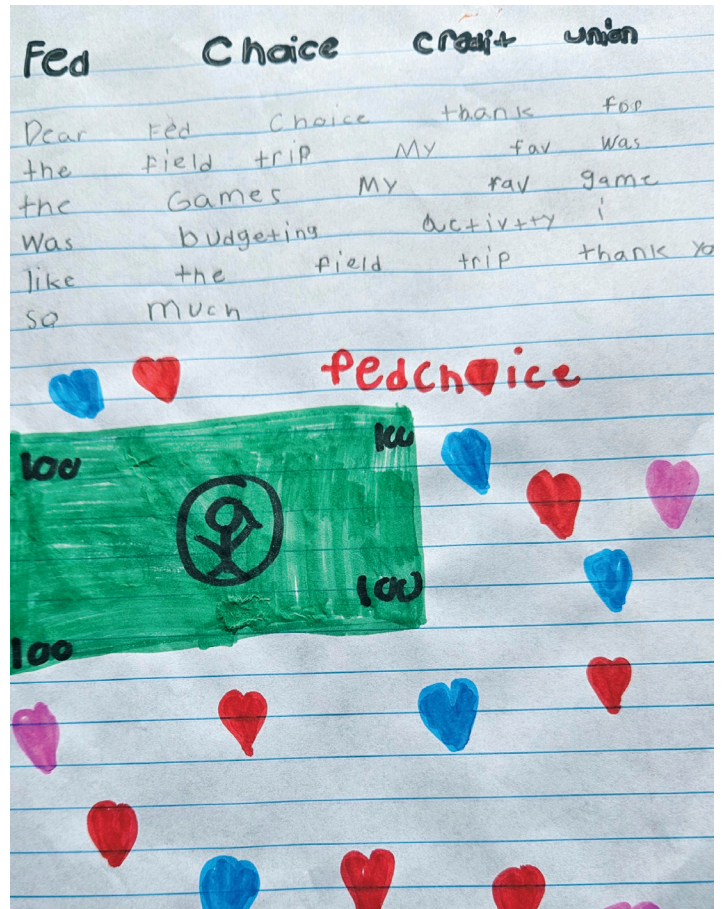 Fed Choice Credit union
Dear Fed Choice thank for
the field trip My fav was
the Games My fav game
was budgeting activtty i
like the field trip thank yo
so much
fedchoice
100 100
100
100